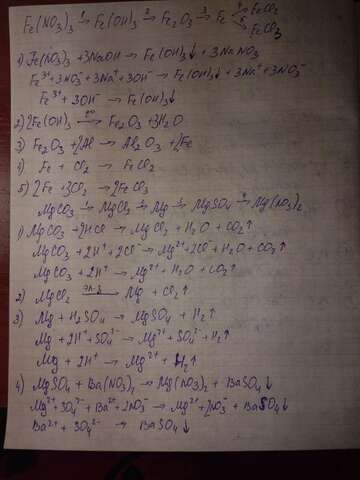 Fe(NO₃)₃ →¹ Fe(OH)₃ →² Fe₂O₃ →³ Fe →⁴ FeCl₂
→⁵ FeCl₃
1) Fe(NO₃)₃ + 3NaOH → Fe(OH)₃↓ + 3NaNO₃
Fe³⁺ + 3NO₃⁻ + 3Na⁺ + 3OH⁻ → Fe(OH)₃↓ + 3Na⁺ + 3NO₃⁻
Fe³⁺ + 3OH⁻ → Fe(OH)₃↓
2) 2Fe(OH)₃ →t° Fe₂O₃ + 3H₂O
3) Fe₂O₃ + 2Al → Al₂O₃ + 2Fe
4) Fe + Cl₂ → FeCl₂
5) 2Fe + 3Cl₂ → 2FeCl₃
MgCO₃ →¹ MgCl₂ →² Mg →³ MgSO₄ →⁴ Mg(NO₃)₂
1) MgCO₃ + 2HCl → MgCl₂ + H₂O + CO₂↑
MgCO₃ + 2H⁺ + 2Cl⁻ → Mg²⁺ + 2Cl⁻ + H₂O + CO₂↑
MgCO₃ + 2H⁺ → Mg²⁺ + H₂O + CO₂↑
2) MgCl₂ →эл-з Mg + Cl₂↑
3) Mg + H₂SO₄ → MgSO₄ + H₂↑
Mg + 2H⁺ + SO₄²⁻ → Mg²⁺ + SO₄²⁻ + H₂↑
Mg + 2H⁺ → Mg²⁺ + H₂↑
4) MgSO₄ + Ba(NO₃)₂ → Mg(NO₃)₂ + BaSO₄↓
Mg²⁺ + SO₄²⁻ + Ba²⁺ + 2NO₃⁻ → Mg²⁺ + 2NO₃⁻ + BaSO₄↓
Ba²⁺ + SO₄²⁻ → BaSO₄↓